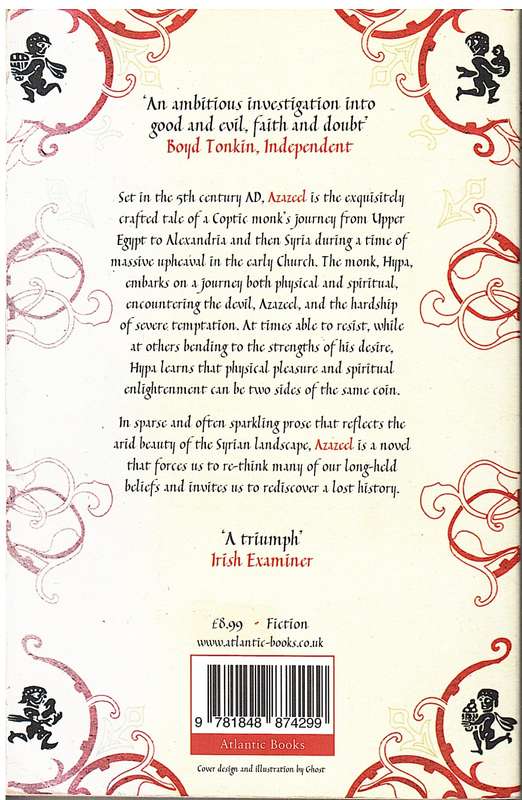 'An ambitious investigation into
good and evil, faith and doubt'
Boyd Tonkin, Independent
Set in the 5th century AD, Azazeel is the exquisitely
crafted tale of a Coptic monk's journey from Upper
Egypt to Alexandria and then Syria during a time of
massive upheaval in the early Church. The monk, Hypa,
embarks on a journey both physical and spiritual,
encountering the devil, Azazeel, and the hardship
of severe temptation. At times able to resist, while
at others bending to the strengths of his desire,
Hypa learns that physical pleasure and spiritual
enlightenment can be two sides of the same coin.
In sparse and often sparkling prose that reflects the
arid beauty of the Syrian landscape, Azazeel is a novel
that forces us to re-think many of our long-held
beliefs and invites us to rediscover a lost history.
'A triumph'
Irish Examiner
£8.99 - Fiction
www.atlantic-books.co.uk
9 781848 874299
Atlantic Books
Cover design and illustration by Ghost